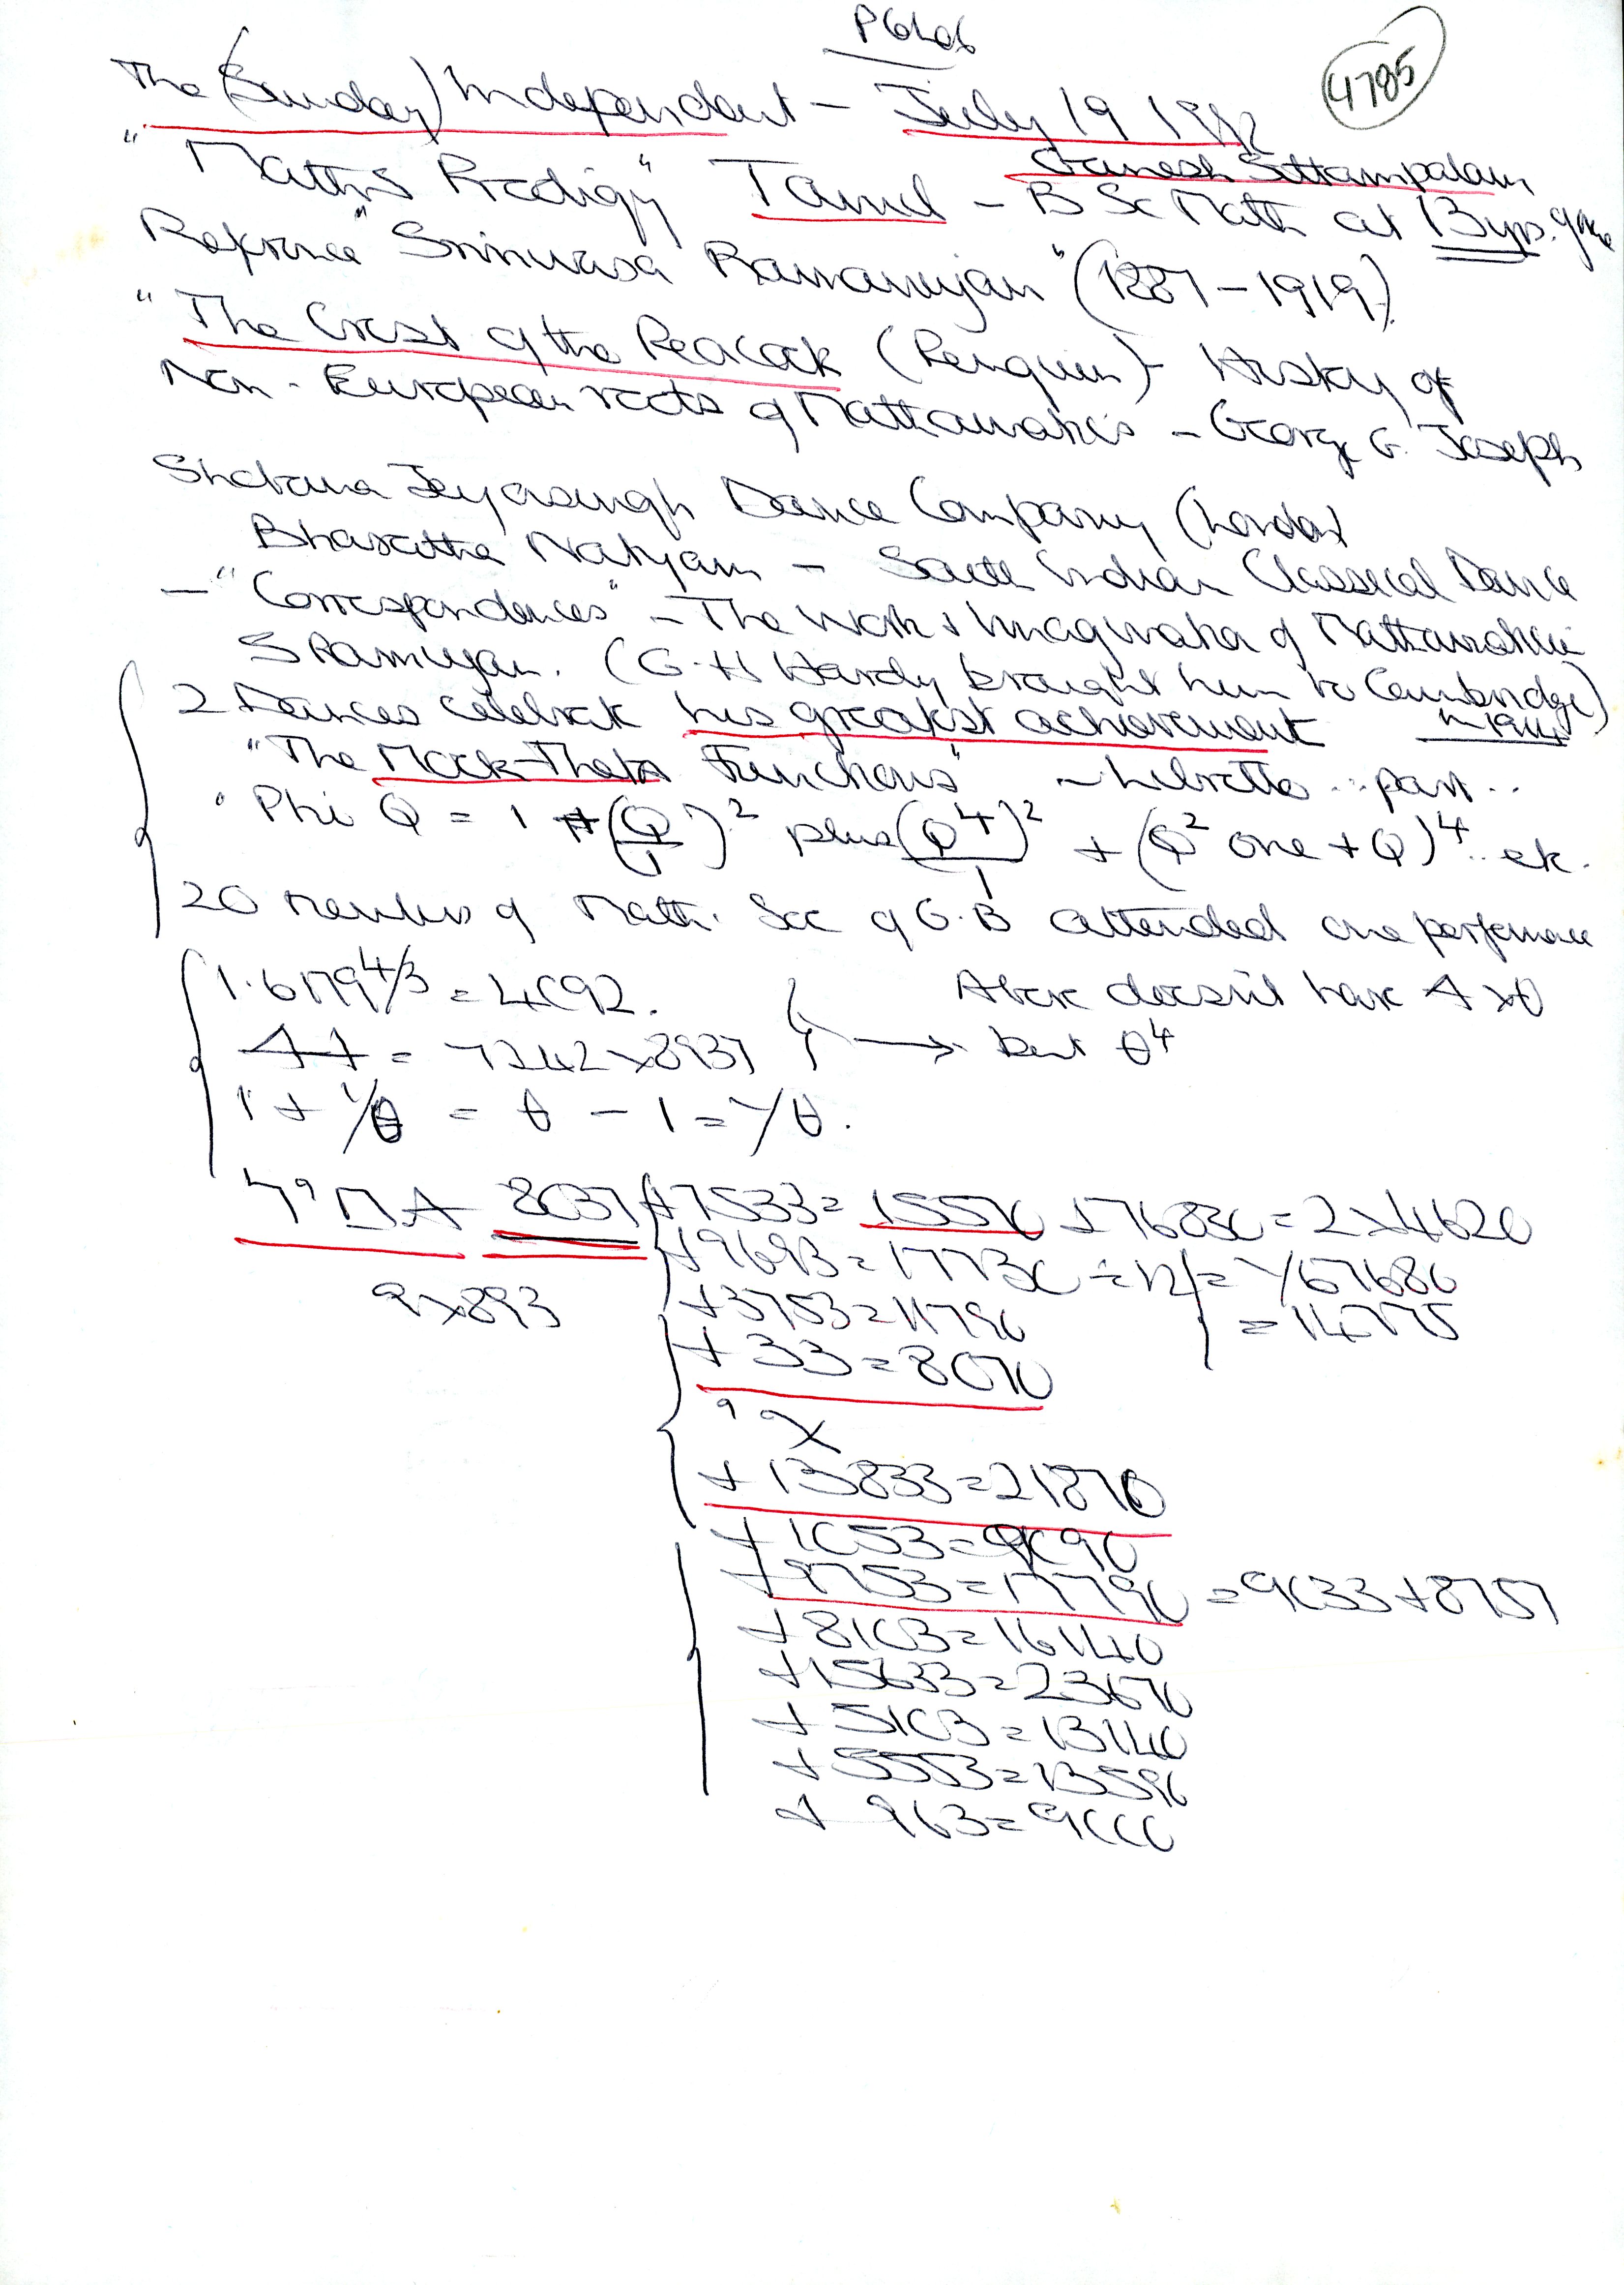 4785
The (Sunday) Independent - July 19 1992
Ganesh Sittampalam
"Maths Prodigy" Tamil - B Sc Math at 13 yrs. of age
Refrence "Srinivasa Ramanujan" (1887 - 1919)
"The Crest of the Peacock (Penguin) - History of
Non-European roots of Mathematics - George G. Joseph
Shobana Jeyasingh Dance Company (London)
Bharatha Natyam - South Indian Classical Dance
- "Correspondences" - The Work & Imagination of Mathematician
S Ramujan. (G.H Hardy brought him to Cambridge)
in 1914
2 Dances celebrate his greatest achievement
"The Mock-Theta Functions" - Libretto .. part ..
" Phi Q = 1 + (Q/1)² plus (Q⁴)²/1 + (Q² one + Q)⁴ .. etc.
20 Members of Math. Soc of G.B attended one performance
1.6179 4/3 = 4092.
Above doesn't have
= 7242 x 8937
→ but θ⁴
1 + 1/θ = θ - 1 = 1/θ.
8037 + 7533 = 15570 + 76830 = 2 x 4620
+ 9693 = 17730 ÷ 12 = 1/67680
9 x 893
+ 3753 = 11790
= 14775
+ 33 = 8070
+ 13833 = 21870
+ 1053 = 9090
+ 9753 = 17790 = 9033 + 8757
+ 8103 = 16140
+ 15633 = 23670
+ 5103 = 13140
+ 5553 = 13590
+ 963 = 9000